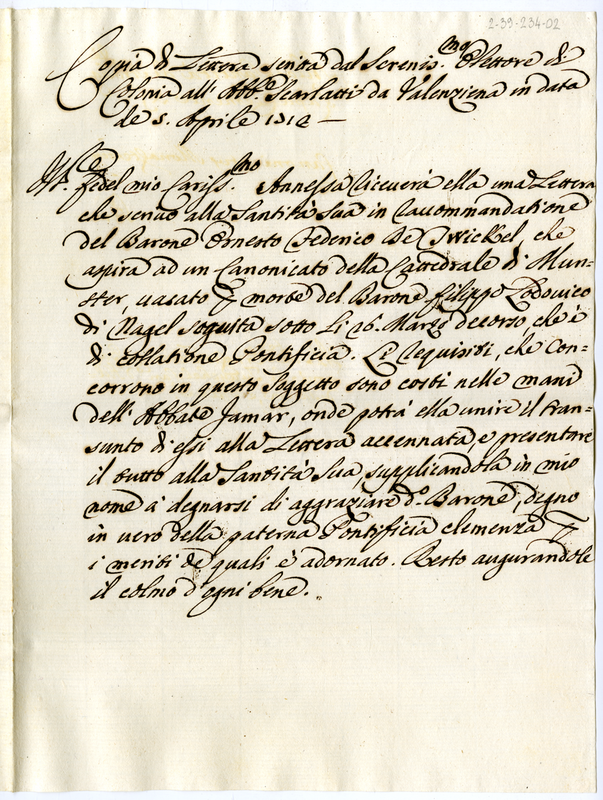 2-39-234-02
Copia di Lettera scritta dal Sereniss.mo Elettore di
Colonia all' Abb.e Scarlatti da Valenziena in data
de 5. Aprile 1712 —
Ill.re fedel mio Cariss.mo Annessa riceverà ella una Lettera
che scrivo alla Santità Sua in raccommandatione
del Barone Ernesto Federico de Twickel, che
aspira ad un Canonicato della Cattedrale di Mun=
ster, vacato p morte del Barone filippo Lodovico
di Nagel seguita sotto li 26. Marzo decorso, che è
di collatione Pontificia. Le requisiti, che con=
corrono in questo Soggetto sono costì nelle mani
dell' Abbate Jamar, onde potrà ella unire il tran=
sunto di essi alla Lettera accennata, e presentare
il tutto alla Santità Sua, supplicandola in mio
nome à degnarsi di aggraziare d.o Barone, degno
in vero della paterna Pontificia clemenza p
i meriti de quali è adornato. Resto augurandole
il colmo d'ogni bene.